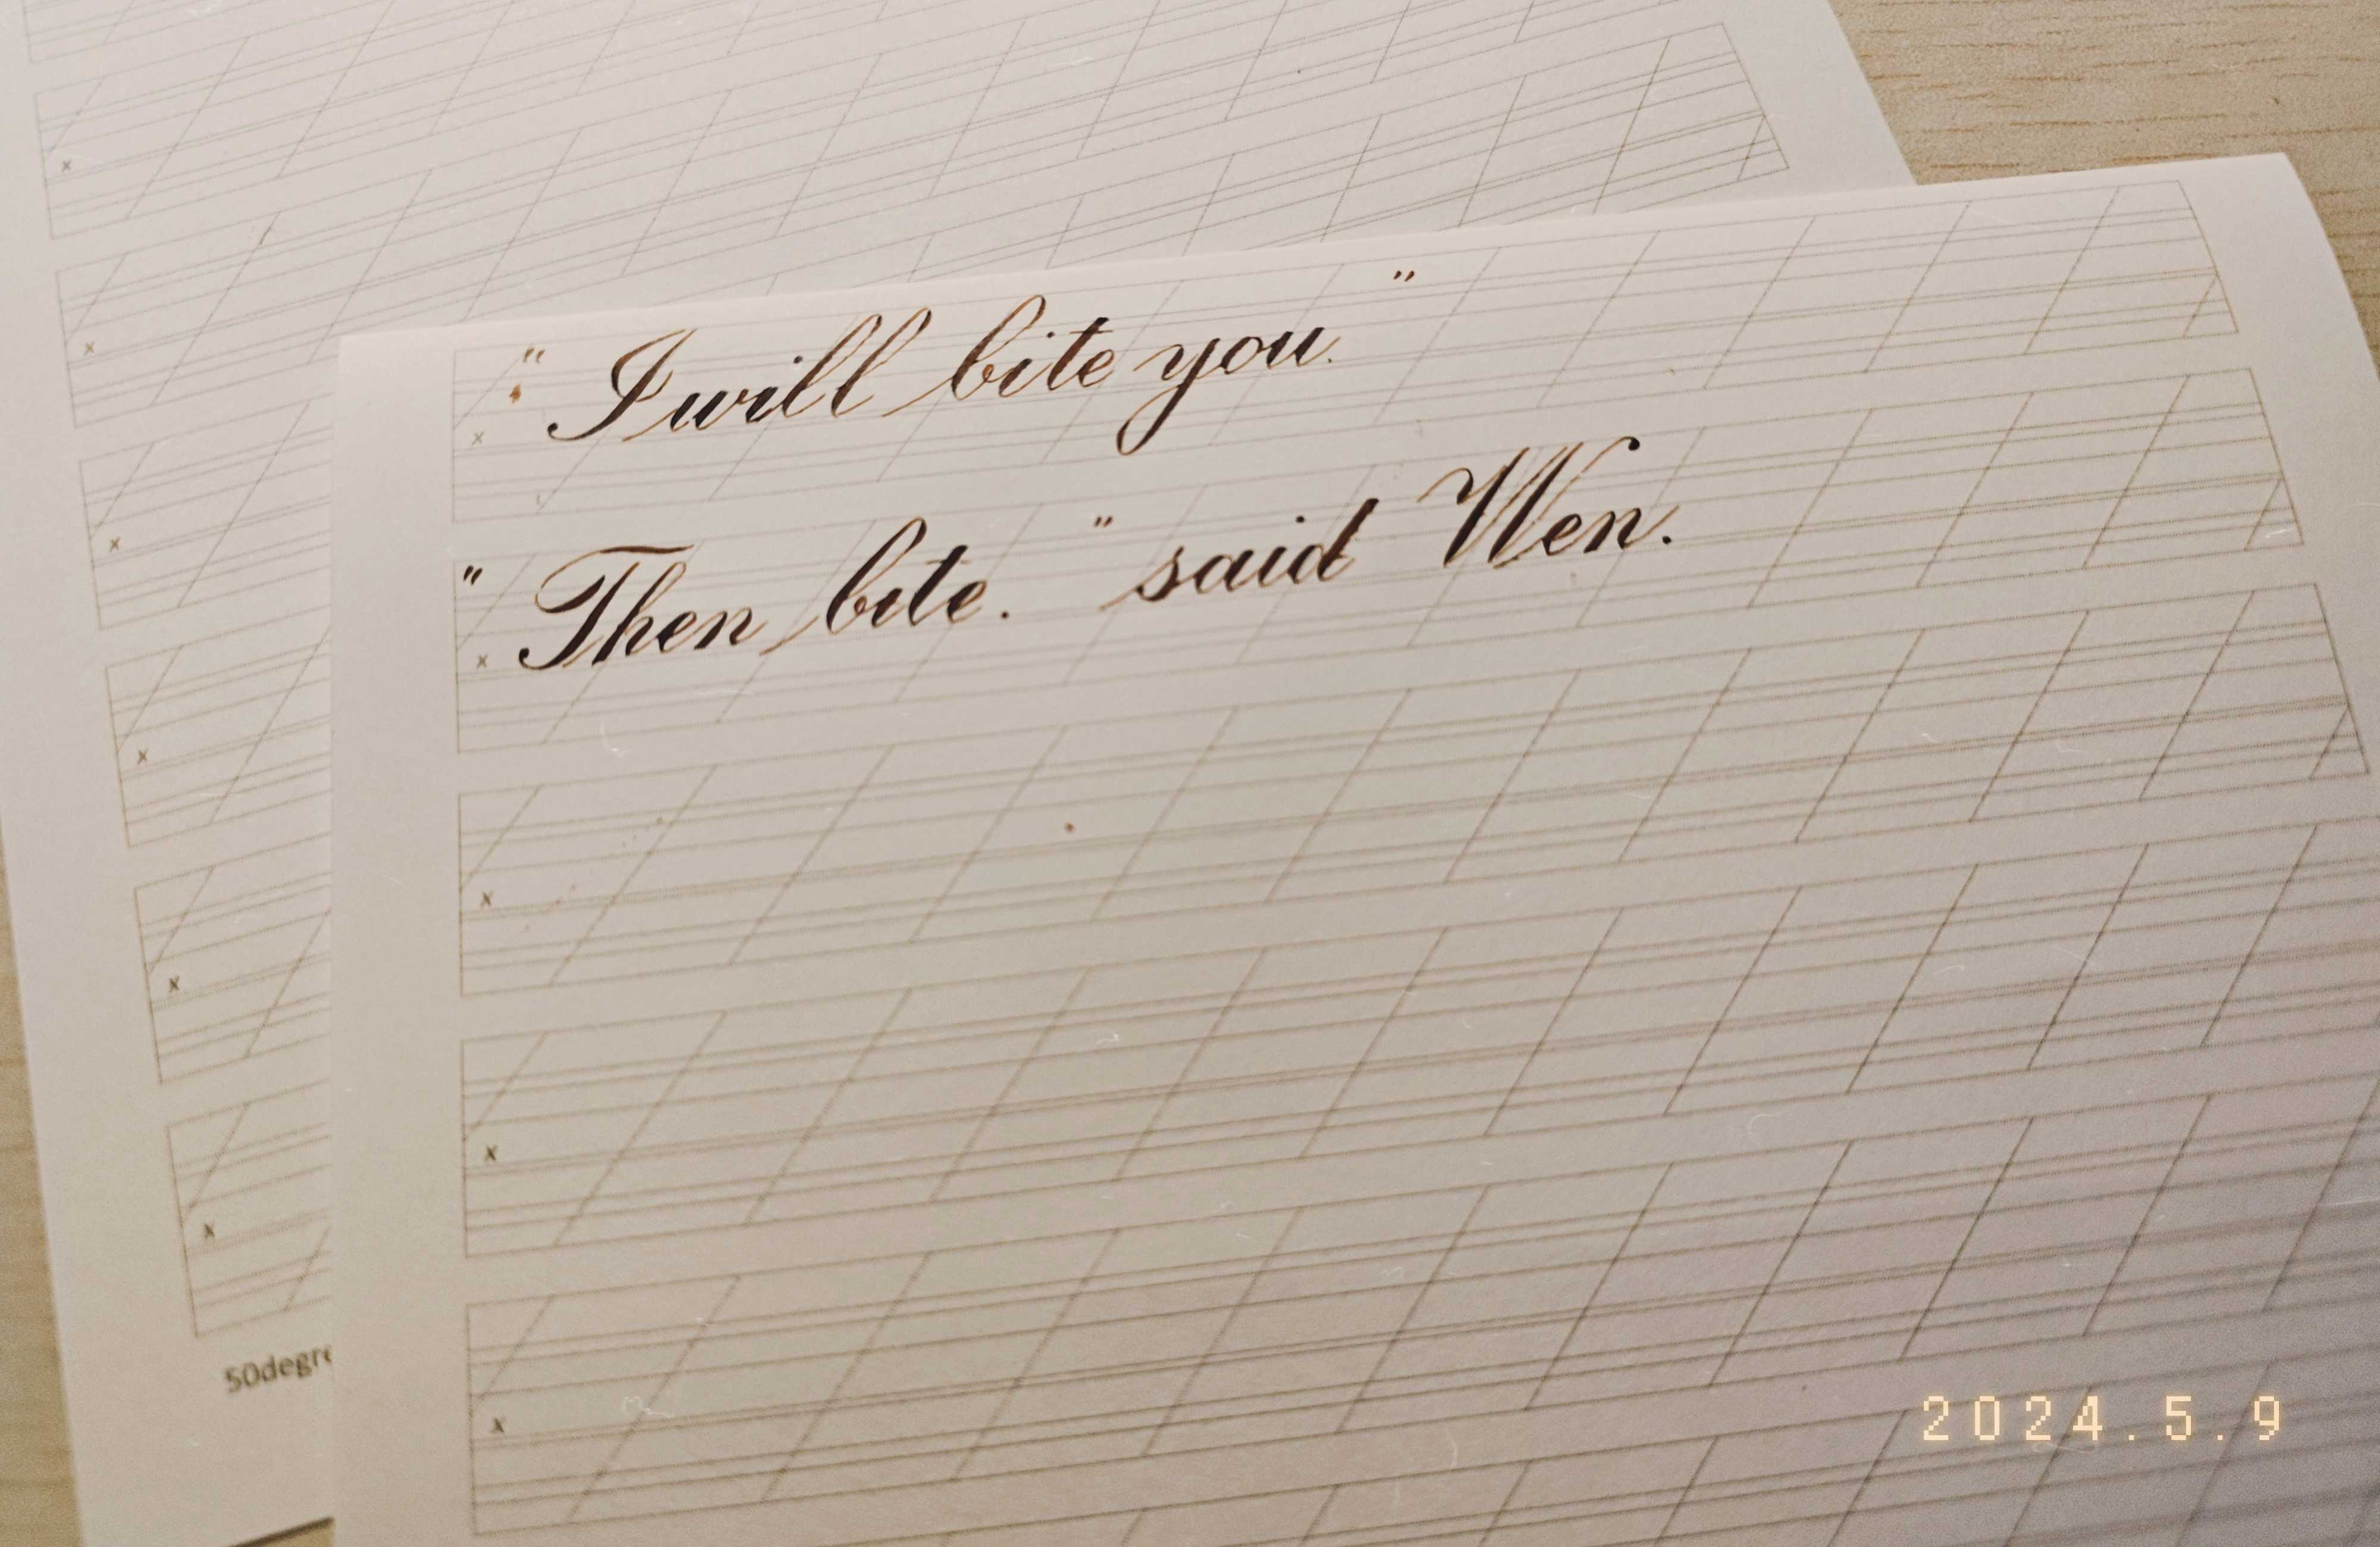 "I will bite you."
"Then bite." said Wen.
x
x
x
x
x
x
x
x
x
x
x
x
50degre
2024.5.9